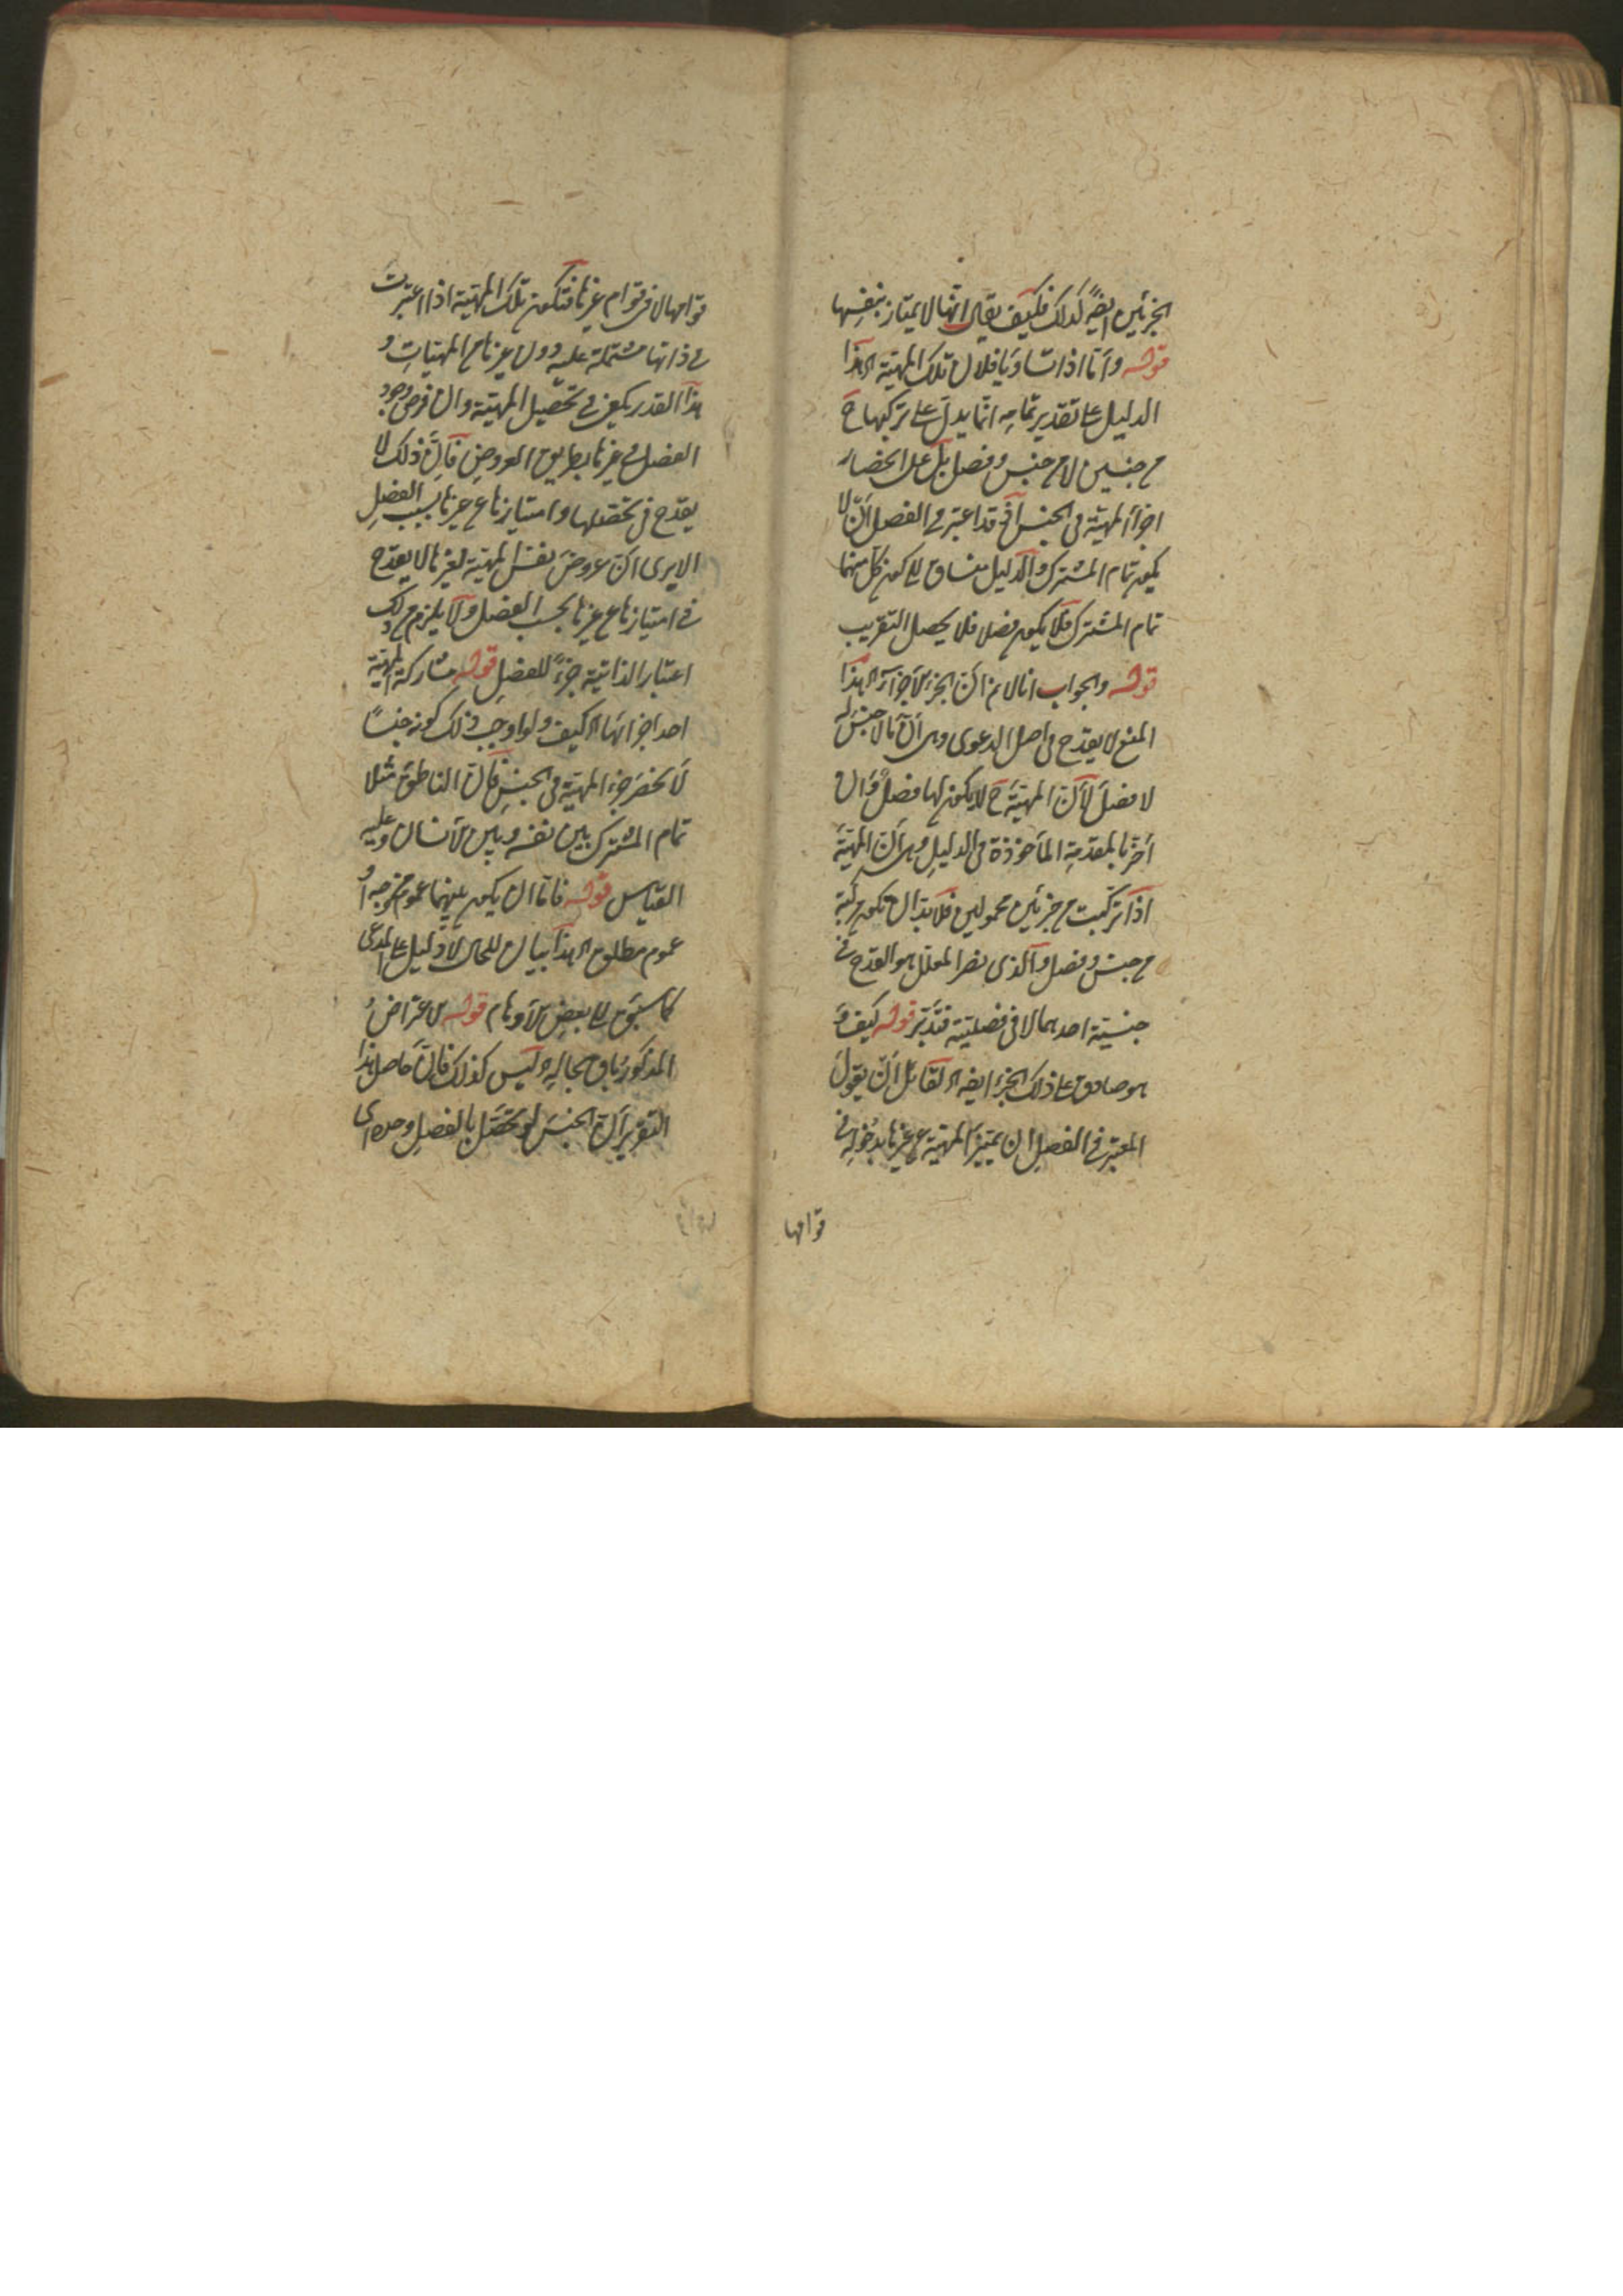 الجزئين ايضًا كذلك فكيف يقال انها لا يمتاز بنفسها
قوله واما اذا تساويا فلان تلك المهية اه هذا
الدليل على تقدير تمامه انما يدل على تركبها ح
من جنسين لا من جنس وفصل بل على انحصار
اجزاء المهية في الجنس اذ قد اعتبر في الفصل ان لا
يكون تمام المشترك والدليل منساق الى كون كل منهما
تمام المشترك فلا يكون فصلا فلا يحصل التقريب
قوله والجواب انا لانم ان الجزء الاخر اه هذا
المنع لا يقدح في اصل الدعوى وهى ان ما لا جنس له
لا فصل له لان المهية ح لا يكون لها فصل وان
اضر بالمقدمة المأخوذة في الدليل وهى ان المهية
اذا تركبت من جزئين محمولين فلا بد ان تكون مركبة
من جنس وفصل والذى يضر المعلل هو القدح في
جنسية احدهما لا في فصليته فتدبر قوله كيف و
هو صادق على ذلك الجزء ايضا اه لقائل ان يقول
المعتبر في الفصل ان يميز المهية عن غيرها بدخوله في
قوامها
قوامها لا في قوام غيرها فتكون تلك المهية اذا اعتبرت
في ذاتها مشتملة عليه دون غيرها من المهيات و
هذا القدر يكفى في تحصيل المهية وان فرض وجود
الفصل في غيرها بطريق العروض فان ذلك لا
يقدح في تحصلها وامتيازها عن غيرها بسبب الفصل
الا يرى ان عروض نفس المهية لغيرها لا يقدح
في امتيازها عن غيرها بحسب الفصل ولا يلزم من ذلك
اعتبار الذاتية جزءً للفصل قوله مشاركة المهية
احد اجزائها اه كيف ولو اوجب ذلك كونه جنسًا
لانحصر جزء المهية في الجنس فان الناطق مثلا
تمام المشترك بين نفسه وبين الانسان وعليه
القياس قوله فاما ان يكون بينهما عموم من وجه او
عموم مطلق اه هذا بيان للحال لا دليل على المدعى
كما سبق الى بعض الاوهام قوله الاعتراض
المذكور باق بحاله اه ليس كذلك فان حاصل هذا
التقرير ان الجنس لو تحصل بالفصل وحده اى